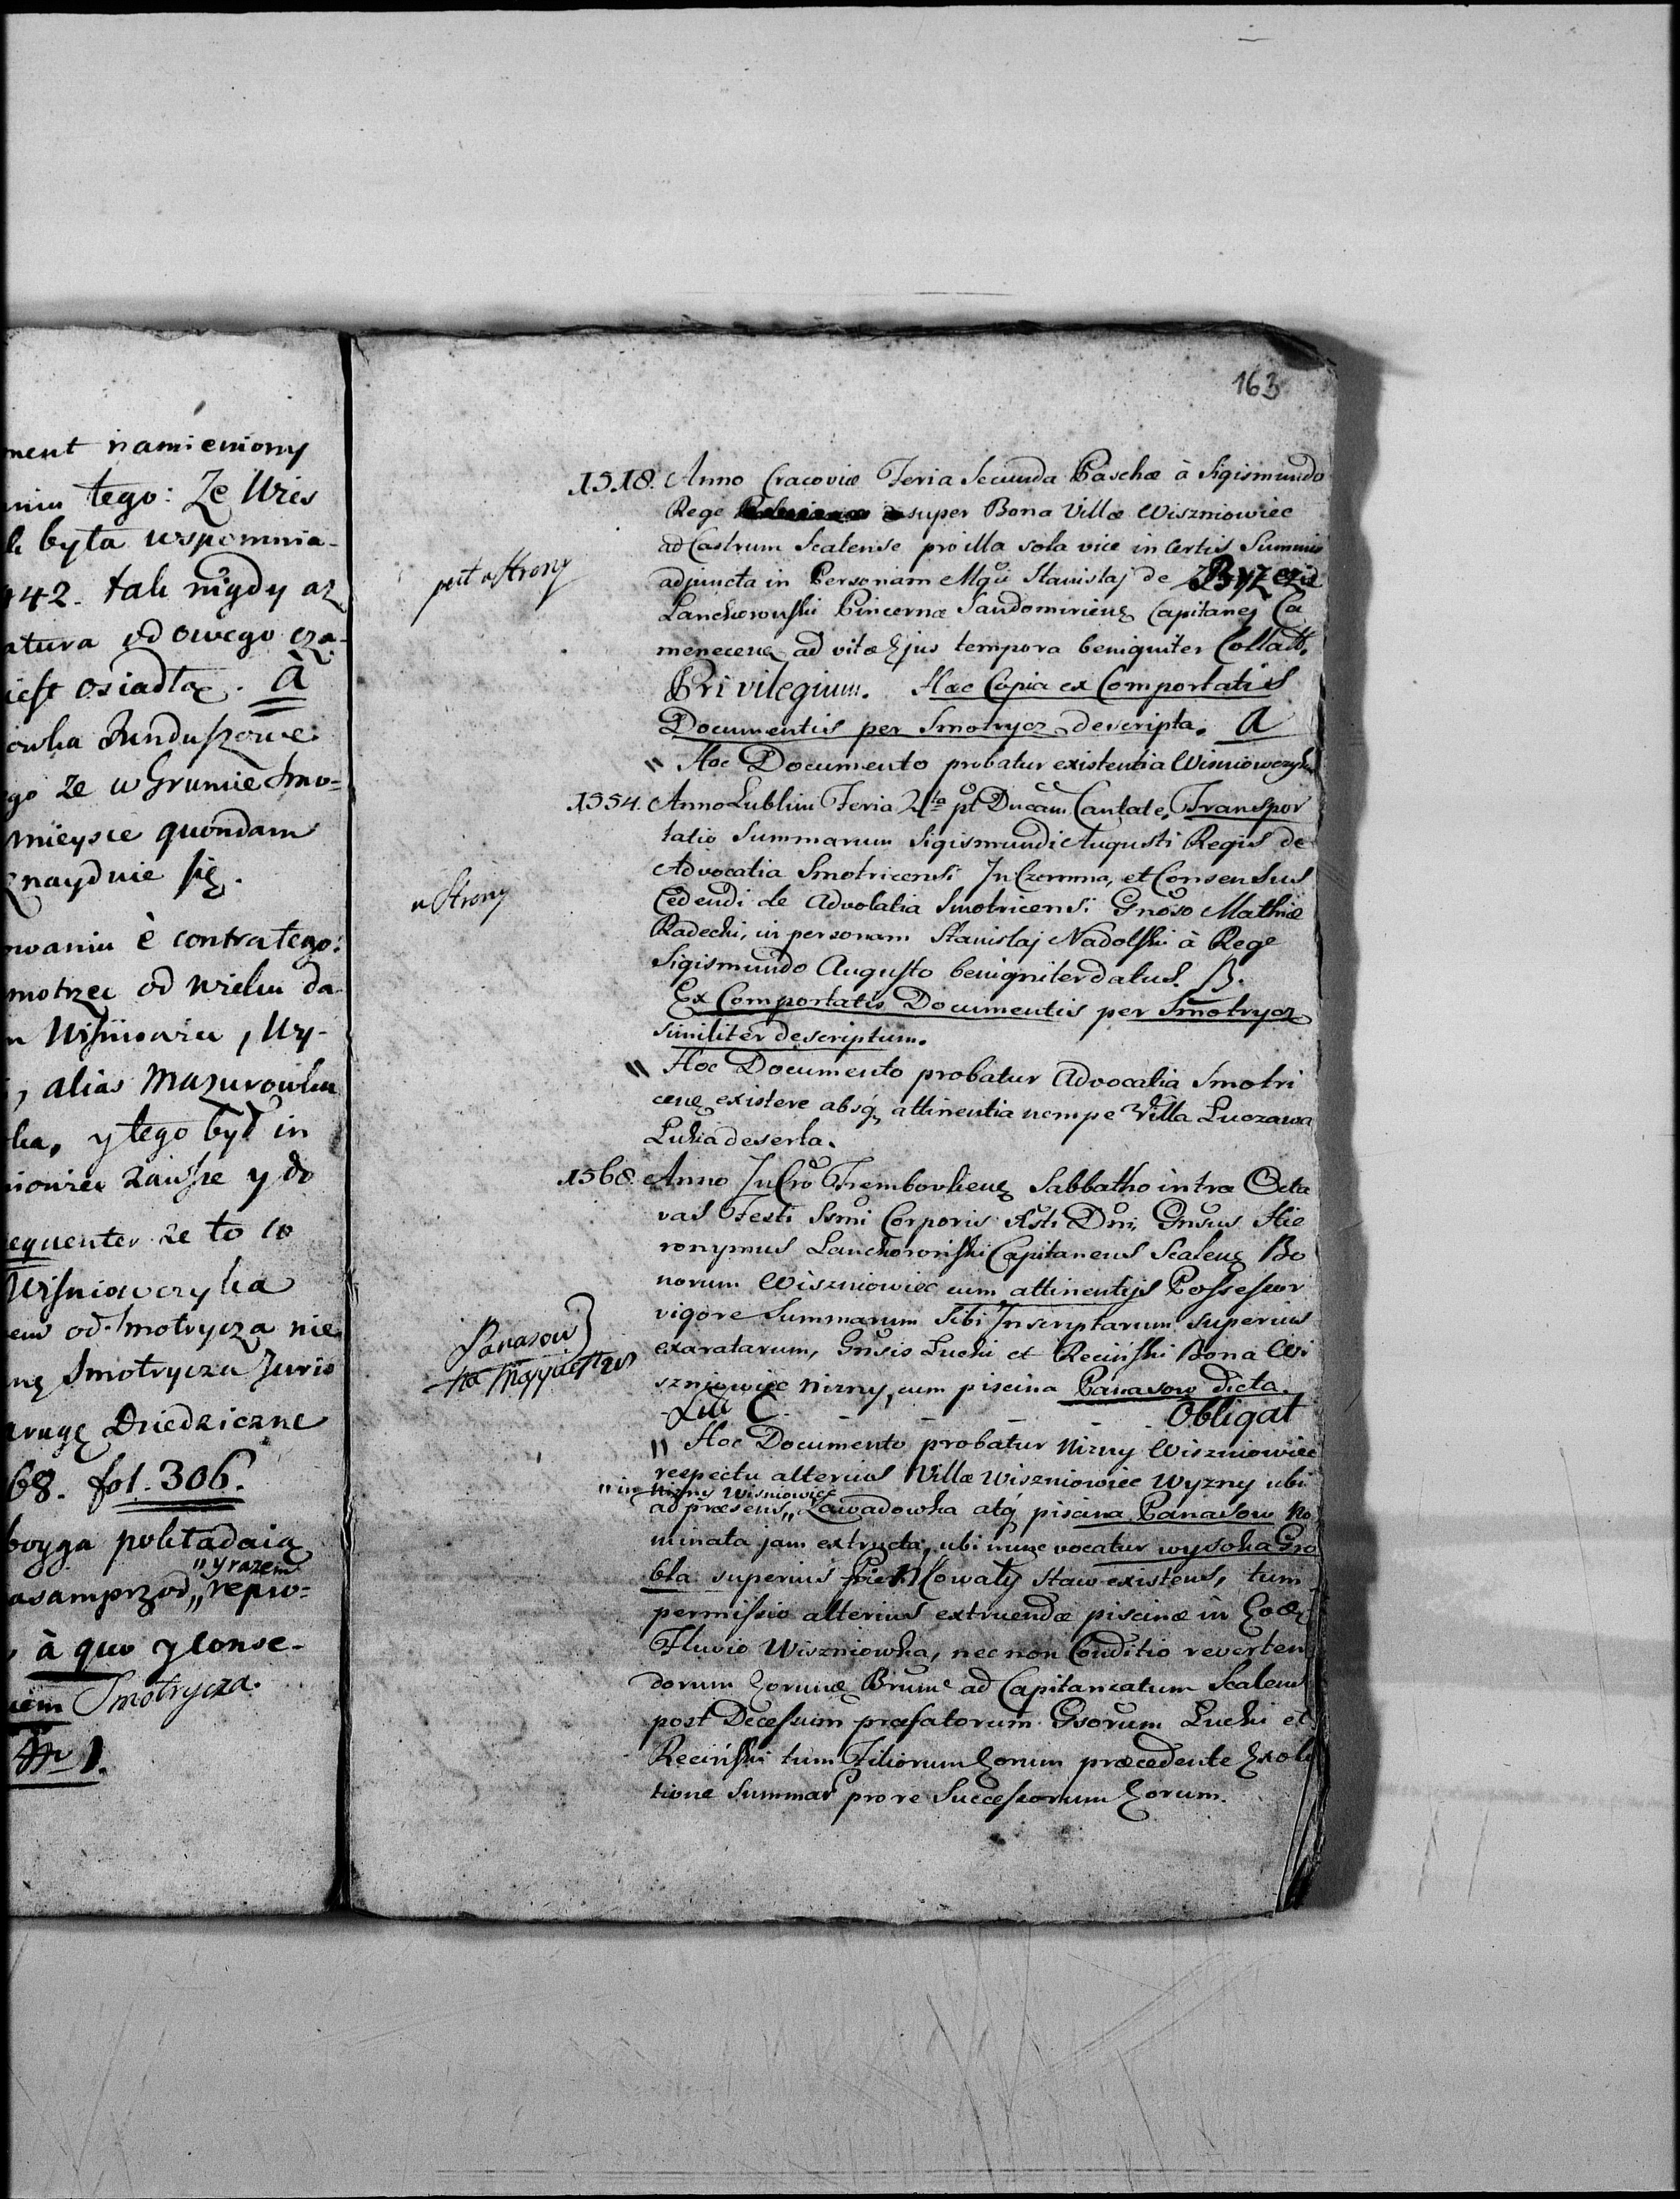 ment namieniony
niu tego: Ze Wies
k była wspomnia-
42. tak nigdy az
atura od owego cza-
iest osiadła. a
owka Funduszowe
go ze w Gruncie Smo-
mieysce quondam
znayduie się.
owaniu è contra tego:
motrzec od wielu da
, alias Mazurowka
ka, y tego był in
niowiec zawsze y do
equenter ze to co
Wiszniowczyka
em od Smotrycza nie
Smotrycza Juris
Dziedziczne
68. fol. 306.
pokładaią
„y razem
asamprzod „repro-
à quo y conse-
Smotrycza.
1.
163
1518. Anno Cracoviæ Feria Secunda Paschæ à Sigismundo
Rege super Bona Villæ Wiszniowiec
ad Castrum Scalense pro illa sola vice in certis Summis
adjuncta in Personam Mgci Stanislaj de Byzezia
Lanckoronski Pincernæ Sandomirienę Capitanej Ca
menecenę ad vitæ Ejus tempora benigniter Collatt.
Privilegium. Hæc Copia ex Comportatis
Documentis per Smotrycz descripta. a
" Hoc Documento probatur existentia Wiszniowczyka
1554. Anno Lublini Feria 2da pt Dncam Cantate, Transpor
tatio Summarum Sigismundi Augusti Regis de
Advocatia Smotricensi In Czermna, et Consensus
Cedendi de Advocatia Smotricensi Gnoso Mathiæ
Radecki, in personam Stanislaj Nadolski à Rege
Sigismundo Augusto benigniter datus. B.
Ex Comportatis Documentis per Smotrycz
similiter descriptum.
" Hoc Documento probatur Advocatia Smotri
cenę existere absq attinentia nempe Villa Luczawa
Luka deserta.
1568. Anno In Cro Trembovlienę Sabbatho intra Octa
vas Festi Ssmi Corporis Xsti Dni, Gnsus Hie
ronymus Lanckoronski Capitaneus Scalenę Bo
norum Wiszniowiec cum attinentijs Possessor
vigore Summarum Sibi Inscriptarum superius
exaratarum, Gnsis Lucki et Reciński Bona Wi
szniowiec nizny, cum piscina Panasow dicta.
Litt C. Obligat
" Hoc Documento probatur Nizny Wiszniowiec
respectu alterius Villæ Wiszniowiec Wyzny ubi
„in Nizny Wiszniowiec
ad præsens „Zawadowka atq piscina Panasow No
minata jam extructa, ubi nunc vocatur wysoka Gro
bla superius staw existens, tum
permissio alterius extruendæ piscinæ in Eodę
Fluvio Wiszniowka, nec non Conditio reverten
dorum ad Capitaneatum Scalens
post Decessum præfatorum Gsorum Lucki et
Reciński tum Filiorum Eorum præcedente Exolu
tione Summar pro re Successorum Eorum.
petit u Strony
u Strony
Panasow